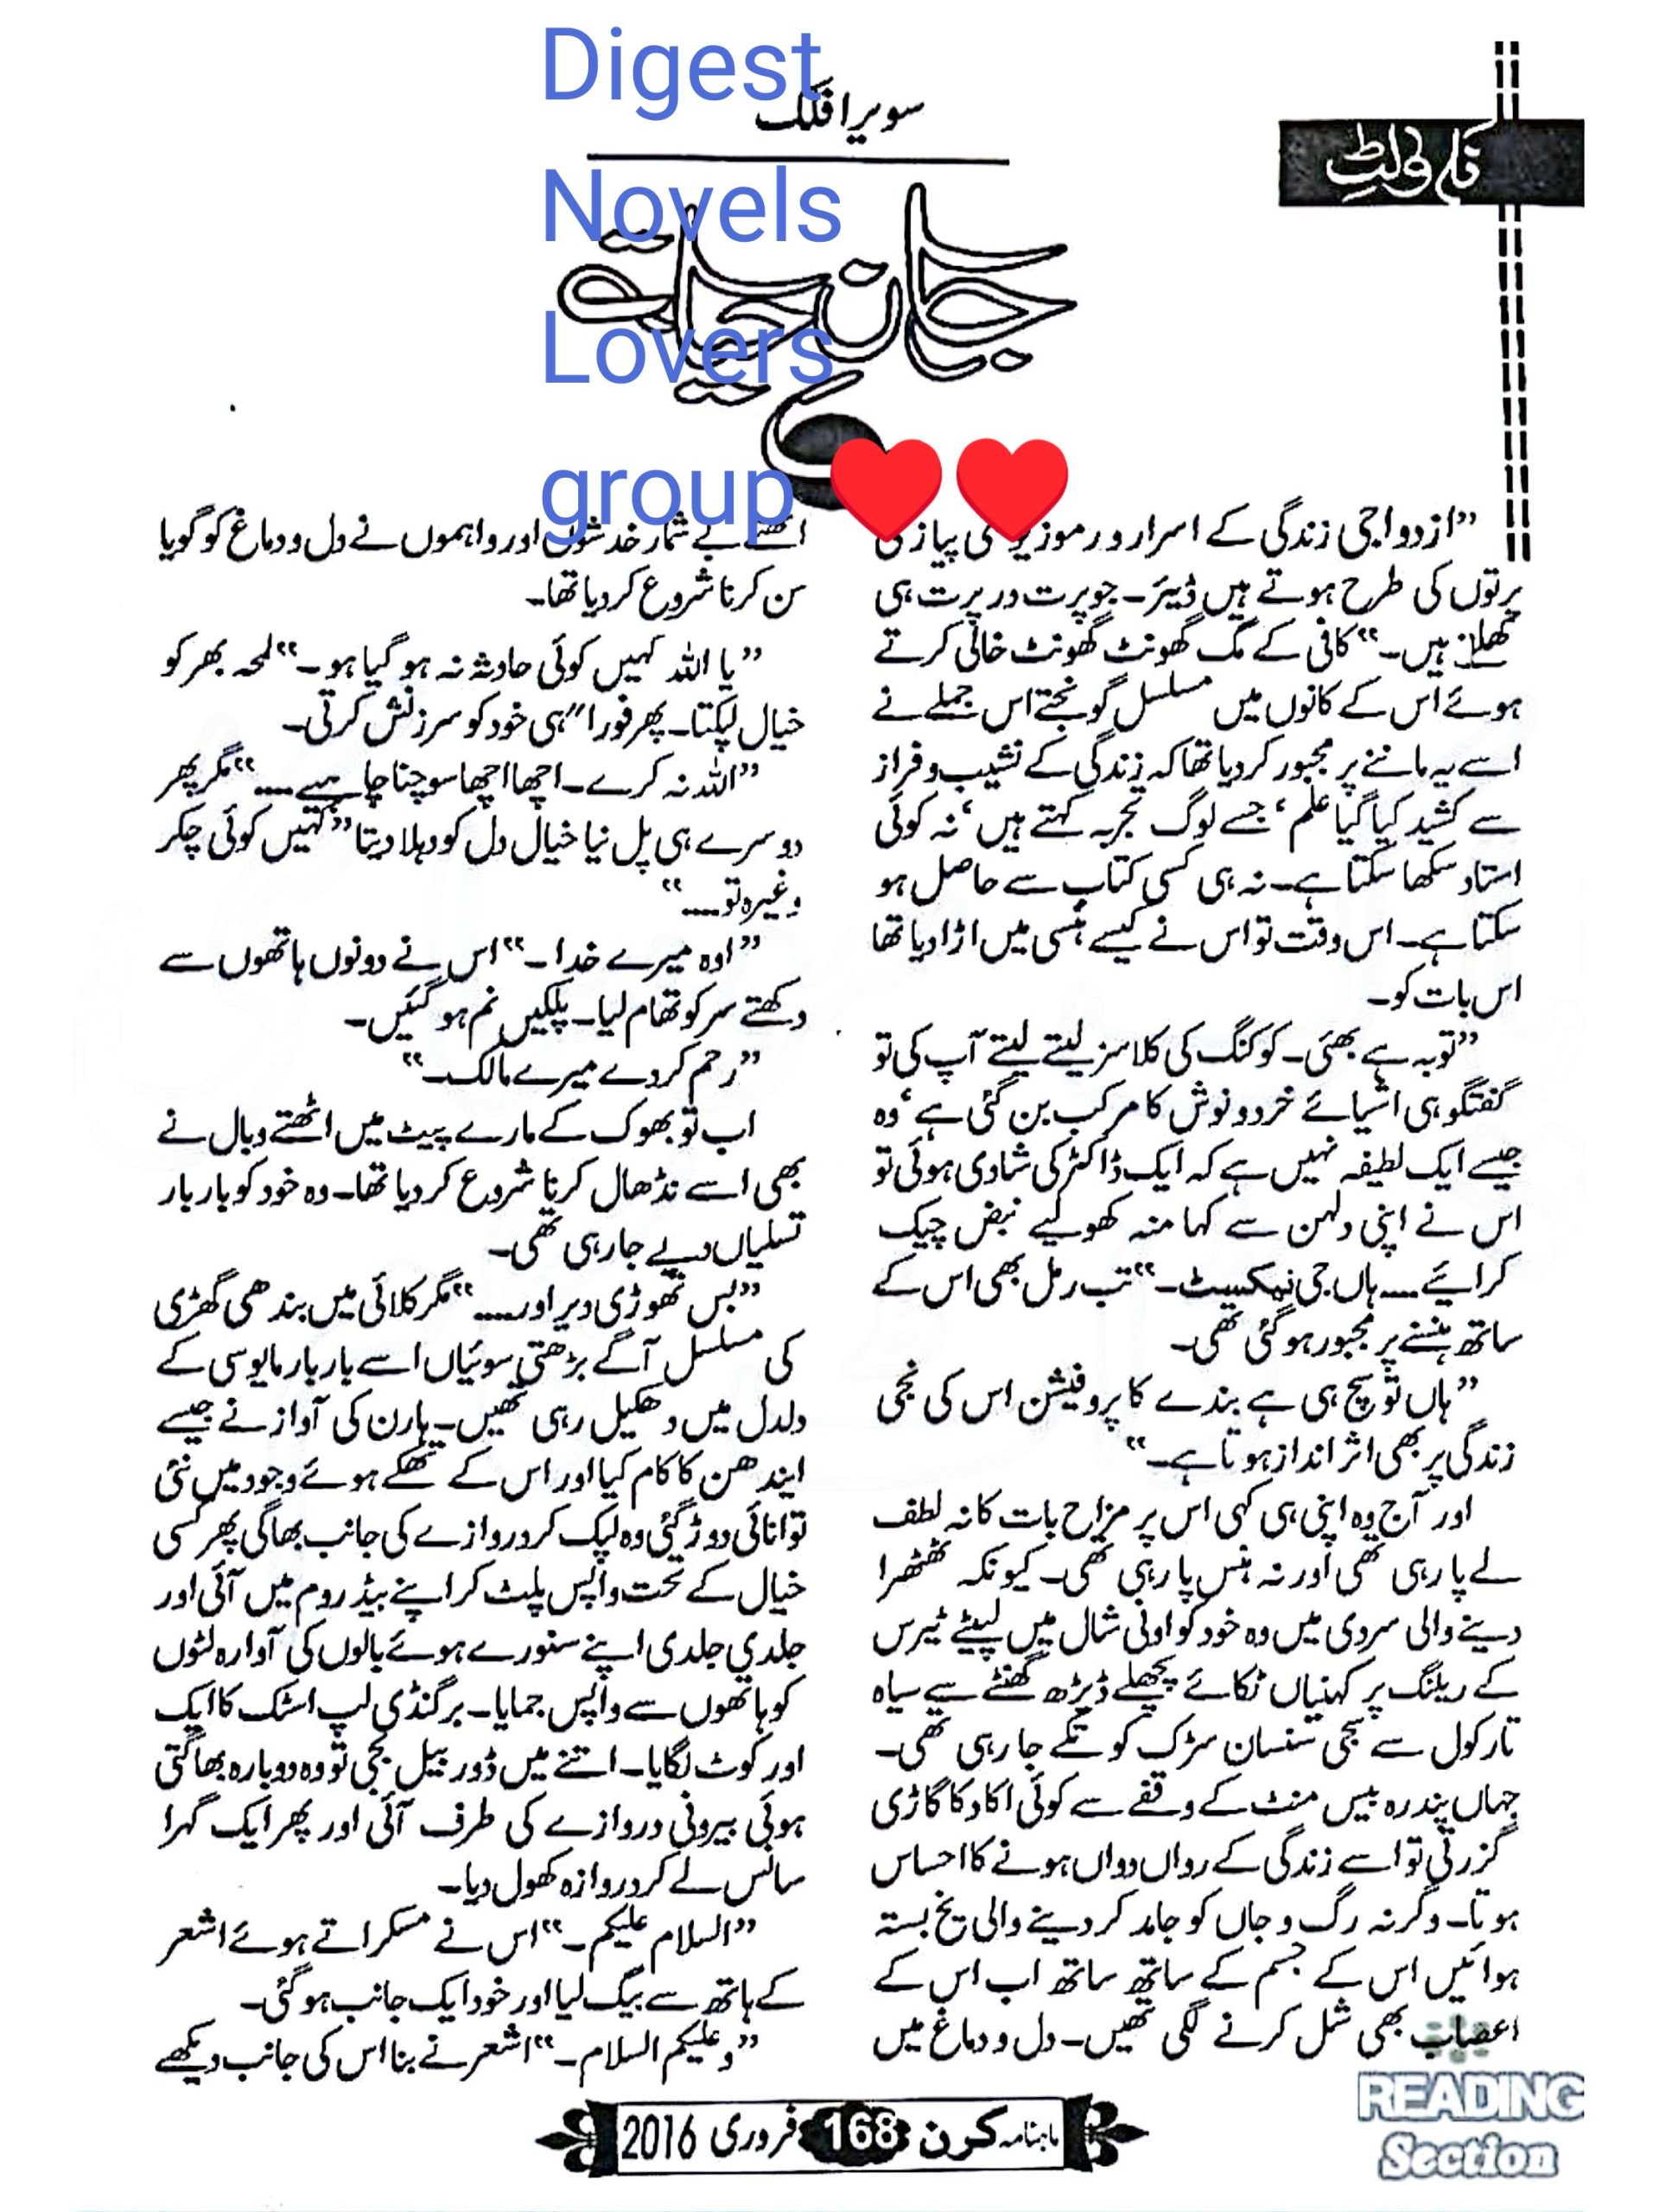 Digest
Novels
Lovers
group ❤️❤️
سویرا فلک
مکمل ناولٹ
“ازدواجی زندگی کے اسرار و رموز پیاز کی
پرتوں کی طرح ہوتے ہیں ڈیئر۔ جو پرت در پرت ہی
کھلتے ہیں۔” کافی کے مگ گھونٹ گھونٹ خالی کرتے
ہوئے اس کے کانوں میں مسلسل گونجتے اس جملے نے
اسے یہ ماننے پر مجبور کر دیا تھا کہ زندگی کے نشیب و فراز
سے کشید کیا گیا علم، جسے لوگ تجربہ کہتے ہیں، نہ کوئی
استاد سکھا سکتا ہے۔ نہ ہی کسی کتاب سے حاصل ہو
سکتا ہے۔ اس وقت تو اس نے کیسے ہنسی میں اڑا دیا تھا
اس بات کو۔
“توبہ ہے بھئی۔ کوکنگ کی کلاسز لیتے لیتے آپ کی تو
گفتگو ہی اشیائے خردونوش کا مرکب بن گئی ہے، وہ
جیسے ایک لطیفہ نہیں ہے کہ ایک ڈاکٹر کی شادی ہوئی تو
اس نے اپنی دلہن سے کہا منہ کھولیے نبض چیک
کرائیے.... ہاں جی نیکسٹ۔” تب رمل بھی اس کے
ساتھ ہنسنے پر مجبور ہو گئی تھی۔
“ہاں تو سچ ہی ہے بندے کا پروفیشن اس کی نجی
زندگی پر بھی اثر انداز ہوتا ہے۔”
اور آج وہ اپنی ہی کہی اس پر مزاح بات کا نہ لطف
لے پا رہی تھی اور نہ ہنس پا رہی تھی۔ کیونکہ ٹھٹھرا
دینے والی سردی میں وہ خود کو اونی شال میں لپیٹے ٹیرس
کے ریلنگ پر کہنیاں ٹکائے پچھلے ڈیڑھ گھنٹے سے سیاہ
تارکول سے سجی سنسان سڑک کو تکے جا رہی تھی۔
جہاں پندرہ بیس منٹ کے وقفے سے کوئی اکا دکا گاڑی
گزرتی تو اسے زندگی کے رواں دواں ہونے کا احساس
ہوتا۔ وگرنہ رگ و جاں کو جامد کر دینے والی یخ بستہ
ہوائیں اس کے جسم کے ساتھ ساتھ اب اس کے
اعصاب بھی شل کرنے لگی تھیں۔ دل و دماغ میں
اٹھتے بے شمار خدشوں اور واہموں نے دل و دماغ کو گویا
سن کرنا شروع کر دیا تھا۔
“یا اللہ کہیں کوئی حادثہ نہ ہو گیا ہو۔” لمحہ بھر کو
خیال لپکتا۔ پھر فورا″ ہی خود کو سرزنش کرتی۔
“اللہ نہ کرے۔ اچھا اچھا سوچنا چاہیے....” مگر پھر
دوسرے ہی پل نیا خیال دل کو دہلا دیتا “کہیں کوئی چکر
وغیرہ تو....”
“اوہ میرے خدا۔” اس نے دونوں ہاتھوں سے
دکھتے سر کو تھام لیا۔ پلکیں نم ہو گئیں۔
“رحم کر دے میرے مالک۔”
اب تو بھوک کے مارے پیٹ میں اٹھتے وبال نے
بھی اسے نڈھال کرنا شروع کر دیا تھا۔ وہ خود کو بار بار
تسلیاں دیے جا رہی تھی۔
“بس تھوڑی دیر اور....” مگر کلائی میں بندھی گھڑی
کی مسلسل آگے بڑھتی سوئیاں اسے بار بار مایوسی کے
دلدل میں دھکیل رہی تھیں۔ ہارن کی آواز نے جیسے
ایندھن کا کام کیا اور اس کے تھکے ہوئے وجود میں نئی
توانائی دوڑ گئی وہ لپک کر دروازے کی جانب بھاگی پھر کسی
خیال کے تحت واپس پلٹ کر اپنے بیڈ روم میں آئی اور
جلدی جلدی اپنے سنورے ہوئے بالوں کی آوارہ لٹوں
کو ہاتھوں سے واپس جمایا۔ برگنڈی لپ اسٹک کا ایک
اور کوٹ لگایا۔ اتنے میں ڈور بیل بجی تو وہ دوبارہ بھاگتی
ہوئی بیرونی دروازے کی طرف آئی اور پھر ایک گہرا
سانس لے کر دروازہ کھول دیا۔
“السلام علیکم۔” اس نے مسکراتے ہوئے اشعر
کے ہاتھ سے بیگ لیا اور خود ایک جانب ہو گئی۔
“وعلیکم السلام۔” اشعر نے بنا اس کی جانب دیکھے
ماہنامہ کرن 168 فروری 2016
READING
Section